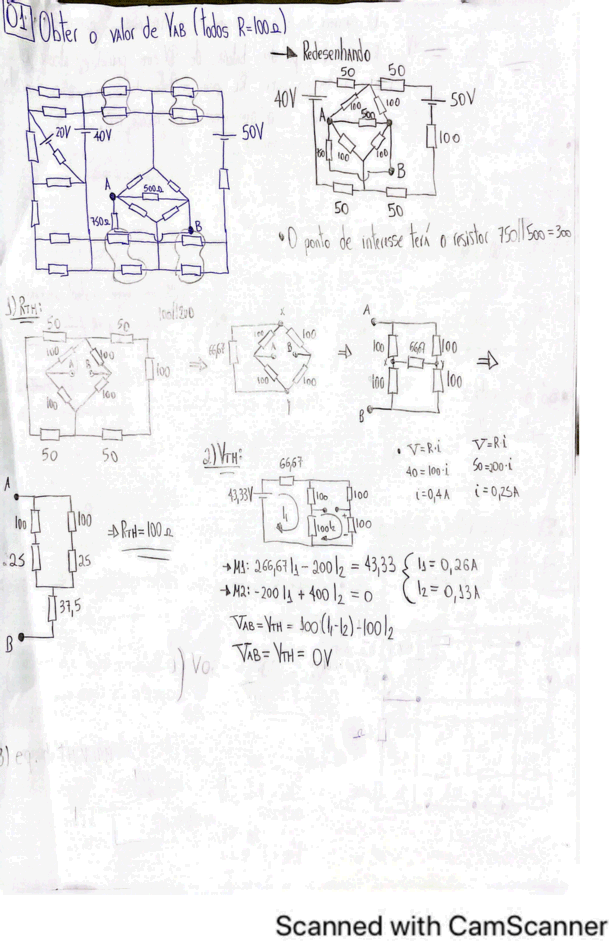 01 Obter o valor de VAB (todos R=100Ω)
→ Redesenhando
20V
40V
50V
A
500Ω
750Ω
B
50
50
40V
50V
100
100
A
500
100
750
100
100
B
50
50
• O ponto de interesse terá o resistor 750//500=300
1) RTH:
50
50
100
100
A
B
100
100
100
50
50
⇒
X
66,67
100
100
A
B
100
100
Y
⇒
A
100
100
X
66,67
Y
100
100
B
⇒
A
100
100
25
25
37,5
B
⇒ RTH=100Ω
2) VTH:
66,67
43,33V
I1
100
100
100
I2
100
• V=R.i
40=100.i
i=0,4A
V=R.i
50=200.i
i=0,25A
→ M1: 266,67I1 - 200I2 = 43,33 { I1=0,26A
→ M2: -200I1 + 400I2 = 0 { I2=0,13A
VAB=VTH= 100(I1-I2)-100I2
VAB=VTH= 0V
Scanned with CamScanner